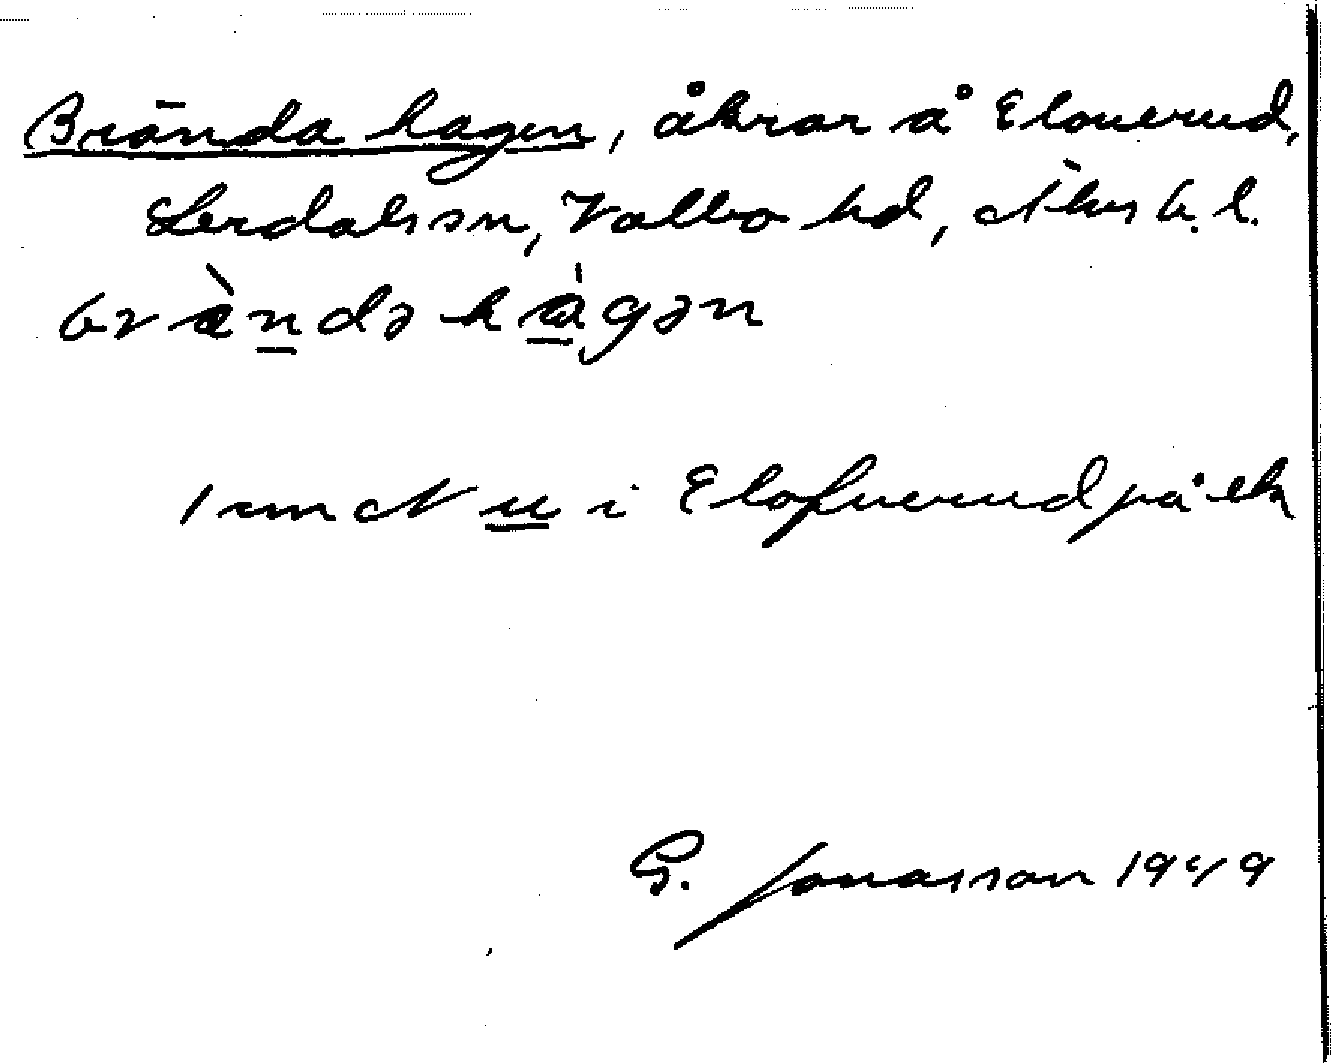 Brända hagen, åkrar å Elonerud,
Lerdals sn, Valbo hd, Älvs b. l.
brä̀ndə hàgən
1 km N u i Elofnerud på ek
G. Jonasson 1949